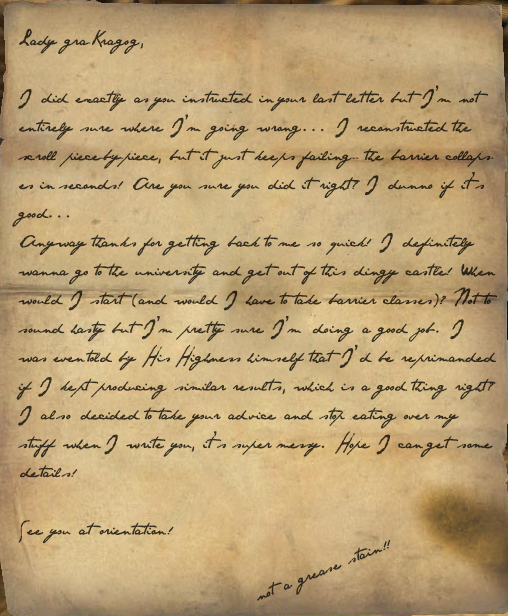 Lady gra Kragog,
I did exactly as you instructed in your last letter but I'm not
entirely sure where I'm going wrong... I reconstructed the
scroll piece by piece, but it just keeps failing.. the barrier collaps-
es in seconds! Are you sure you did it right? I dunno if it's
good...
Anyway thanks for getting back to me so quick! I definitely
wanna go to the university and get out of this dingy castle! When
would I start (and would I have to take barrier classes)? Not to
sound hasty but I'm pretty sure I'm doing a good job. I
was even told by His Highness himself that I'd be reprimanded
if I kept producing similar results, which is a good thing right?
I also decided to take your advice and stop eating over my
stuff when I write you, it's super messy. Hope I can get some
details!
See you at orientation!
not a grease stain!!